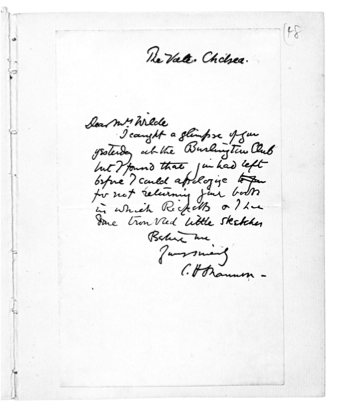 48
The Vale. Chelsea.
Dear Mrs Wilde
I caught a glimpse of you
yesterday at the Burlington Club
but I found that you had left
before I could apologise
for not returning your book
in which Ricketts & I have
done two little sketches
Believe me
Yours sincerely
C H Shannon